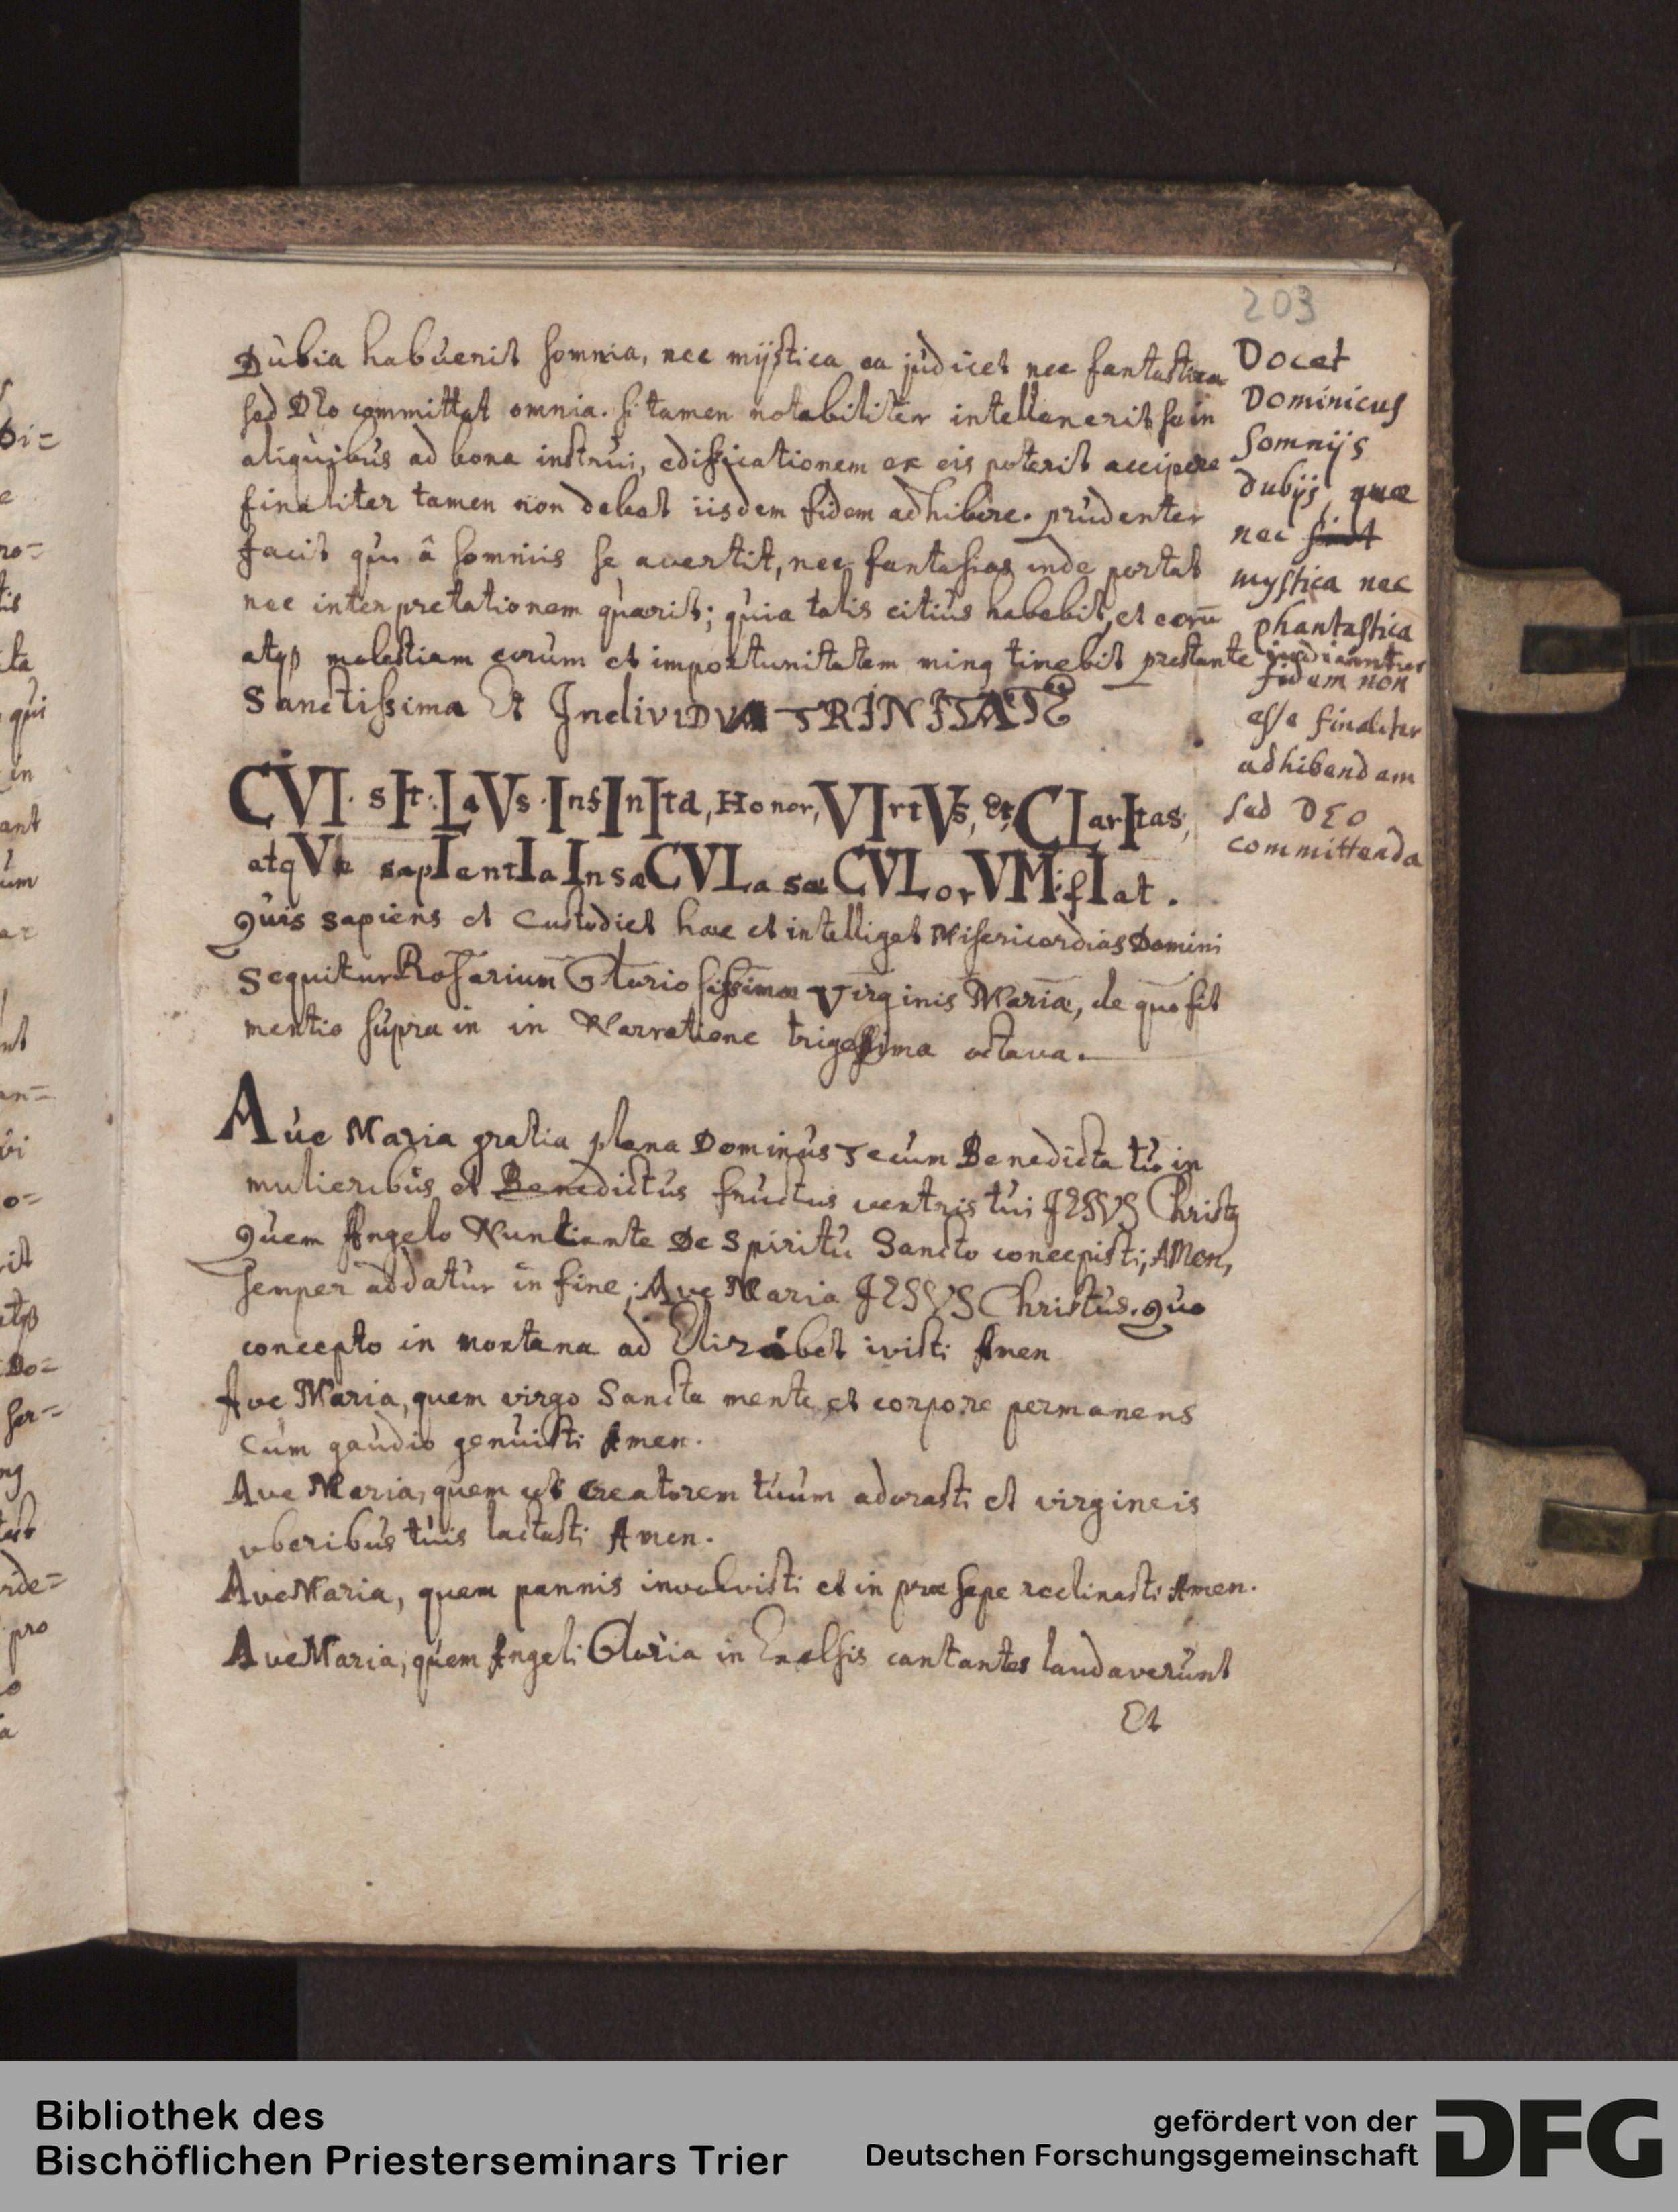 203
Dubia habuerit somnia, nec mijstica ea judicet nec fantastica
sed DEo committat omnia. si tamen notabiliter intellexerit se in
aliquibus ad bona instrui, edificationem ex eis poterit accipere
finaliter tamen non debet iisdem fidem adhibere. prudenter
facit qui â somniis se avertit, nec fantasias inde portat
nec interpretationem quærit; quia talis citius habebit, et eorū
atqȝ molestiam eorum et importunitatem minq tinebit prestante
Sanctissima Et IndiviDVA TRINITATE
CVI. sIt: LaVs. InfInIta, Honor, VIrtVs, et, CLarItas,
atqVe sapIentIa In sæCVLa sæCVLorVM: fIat.
Quis sapiens et Custodiet hæc et intelliget Misericordias Domini
Sequitur Rosarium Gloriosissimæ Virginis Mariæ, de quo fit
mentio supra in in Narratione trigesima octava.
Ave Maria gratia plena Dominus Tecum Benedicta tu in
mulieribus et Benedictus fructus ventris tui JESVS Christq
Quem Angelo Nuntiante De Spiritu Sancto concepisti; AMen,
semper addatur in fine; Ave Maria JESVS Christus. Quo
concepto in montana ad Elizabet ivisti Amen
Ave Maria, quem virgo Sancta mente et corpore permanens
cum gaudio genuisti Amen.
Ave Maria, quem ut creatorem tuum adorasti et virgineis
vberibus tuis lactasti Amen.
Ave Maria, quem pannis involvisti et in præsepe reclinasti Amen.
Ave Maria, quem Angeli Gloria in Excelsis cantantes laudaverunt
Et
Docet
Dominicus
Somnijs
dubijs, quæ
nec sint
mystica nec
phantastica
fidem non
esse finaliter
adhibendam
sed DEO
committenda
Bibliothek des
Bischöflichen Priesterseminars Trier
gefördert von der
Deutschen Forschungsgemeinschaft
DFG